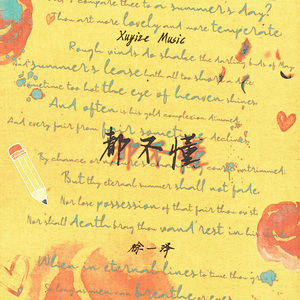 I compare thee to a summer's day?
thou art more lovely and more temperate
Xuyize Music
Rough winds do shake the darling buds of May
And summer's lease hath all too short a date
Sometime too hot the eye of heaven shines
And often is his gold complexion dimmed
And every fair from fair sometime declines
都不懂
By chance or
untrimmed
But thy eternal summer shall not fade
Nor lose possession of that fair thou ow'st
Nor shall death brag thou wand'rest in his
徐一泽
When in eternal lines to time thou
So long as men can breathe or eyes